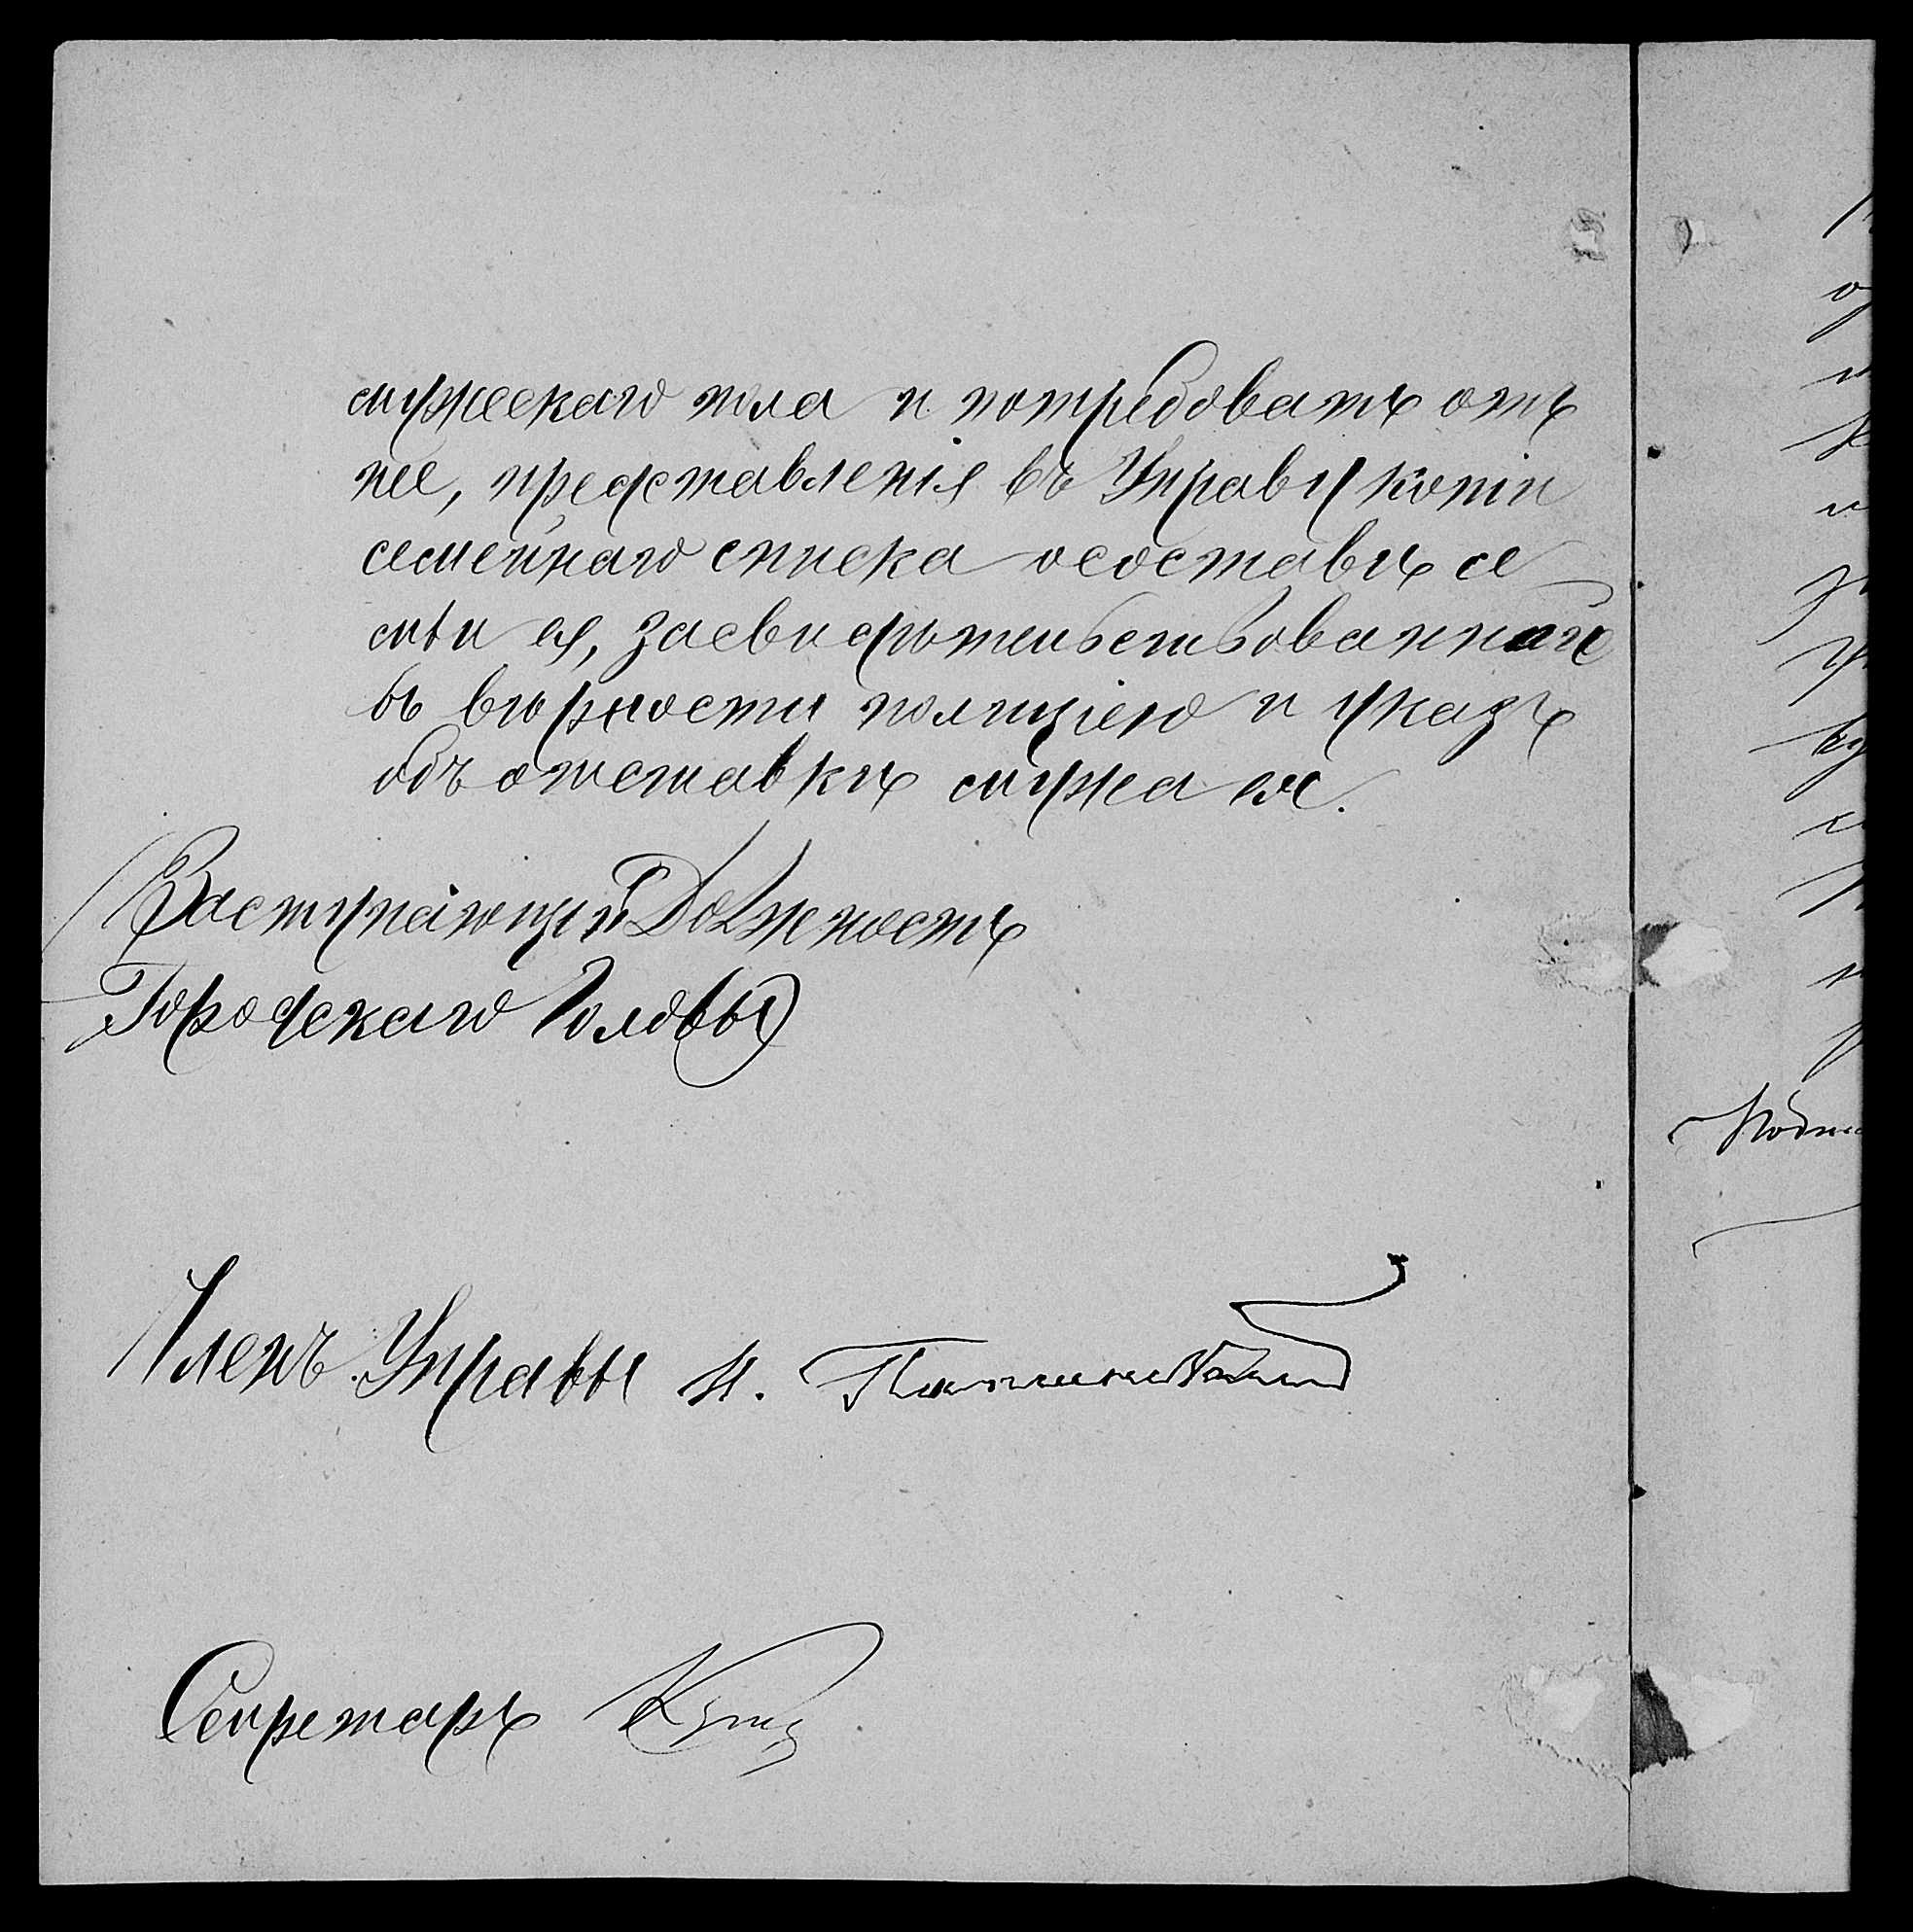 мужескаго пола и потребовать отъ
нее, представленія въ Управу копіи
семейнаго списка о составѣ се
мьи ея, засвидѣтельствованнаго
въ вѣрности полиціею и указъ
объ отставкѣ мужа ея.
Заступающій Должность
Городскаго Головы
Членъ Управы
Секретарь